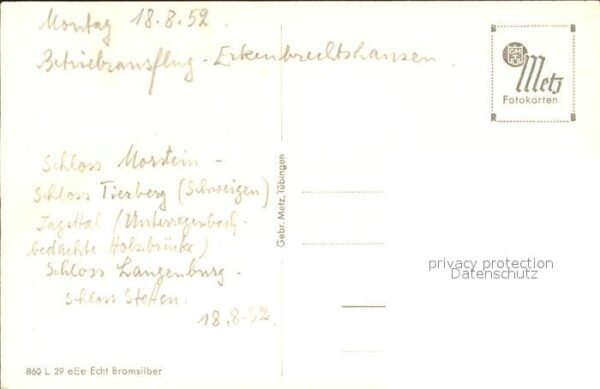 Montag 18.8.52.
Betriebsausflug - Erkenbrechtshausen.
B B
Metz
Fotokarten
R B
Schloss Morstein -
Schloss Tierberg (Schweigen)
Jagsttal (Unterregenbach-
bedachte Holzbrücke)
Schloss Langenburg -
Schloss Stetten.
18.8.52.
Gebr. Metz, Tübingen
privacy protection
Datenschutz
860 L 29 eEe Echt Bromsilber